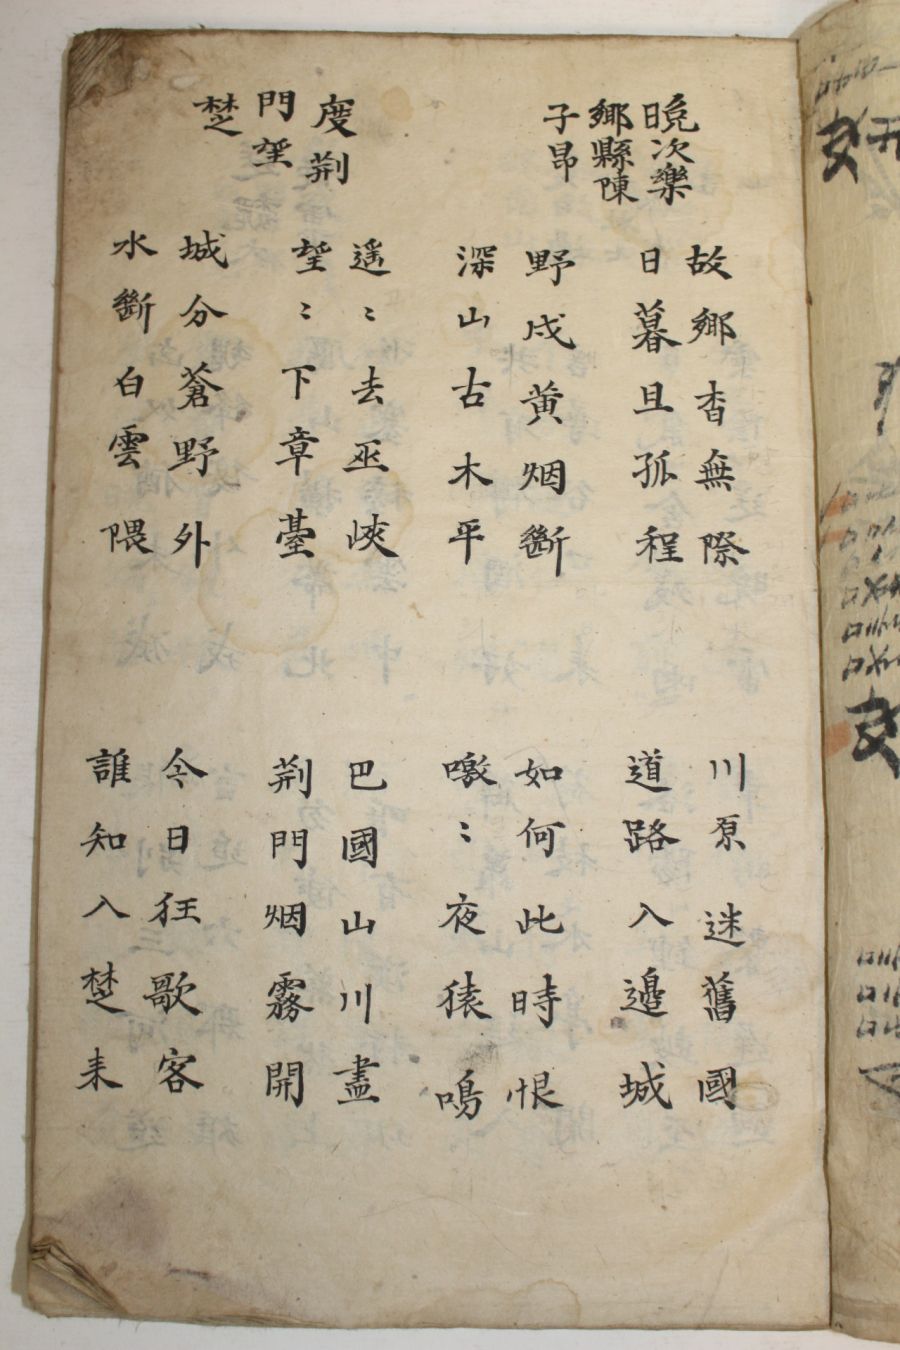 晚次樂
鄉縣陳
子昂
故鄉杳無際
日暮且孤程
川原迷舊國
道路入邊城
野戍黃烟斷
深山古木平
如何此時恨
噭〻夜猿鳴
度荊
門望
楚
遙〻去巫峽
望〻下章臺
巴國山川盡
荊門烟霧開
城分蒼野外
水斷白雲隈
今日狂歌客
誰知入楚来